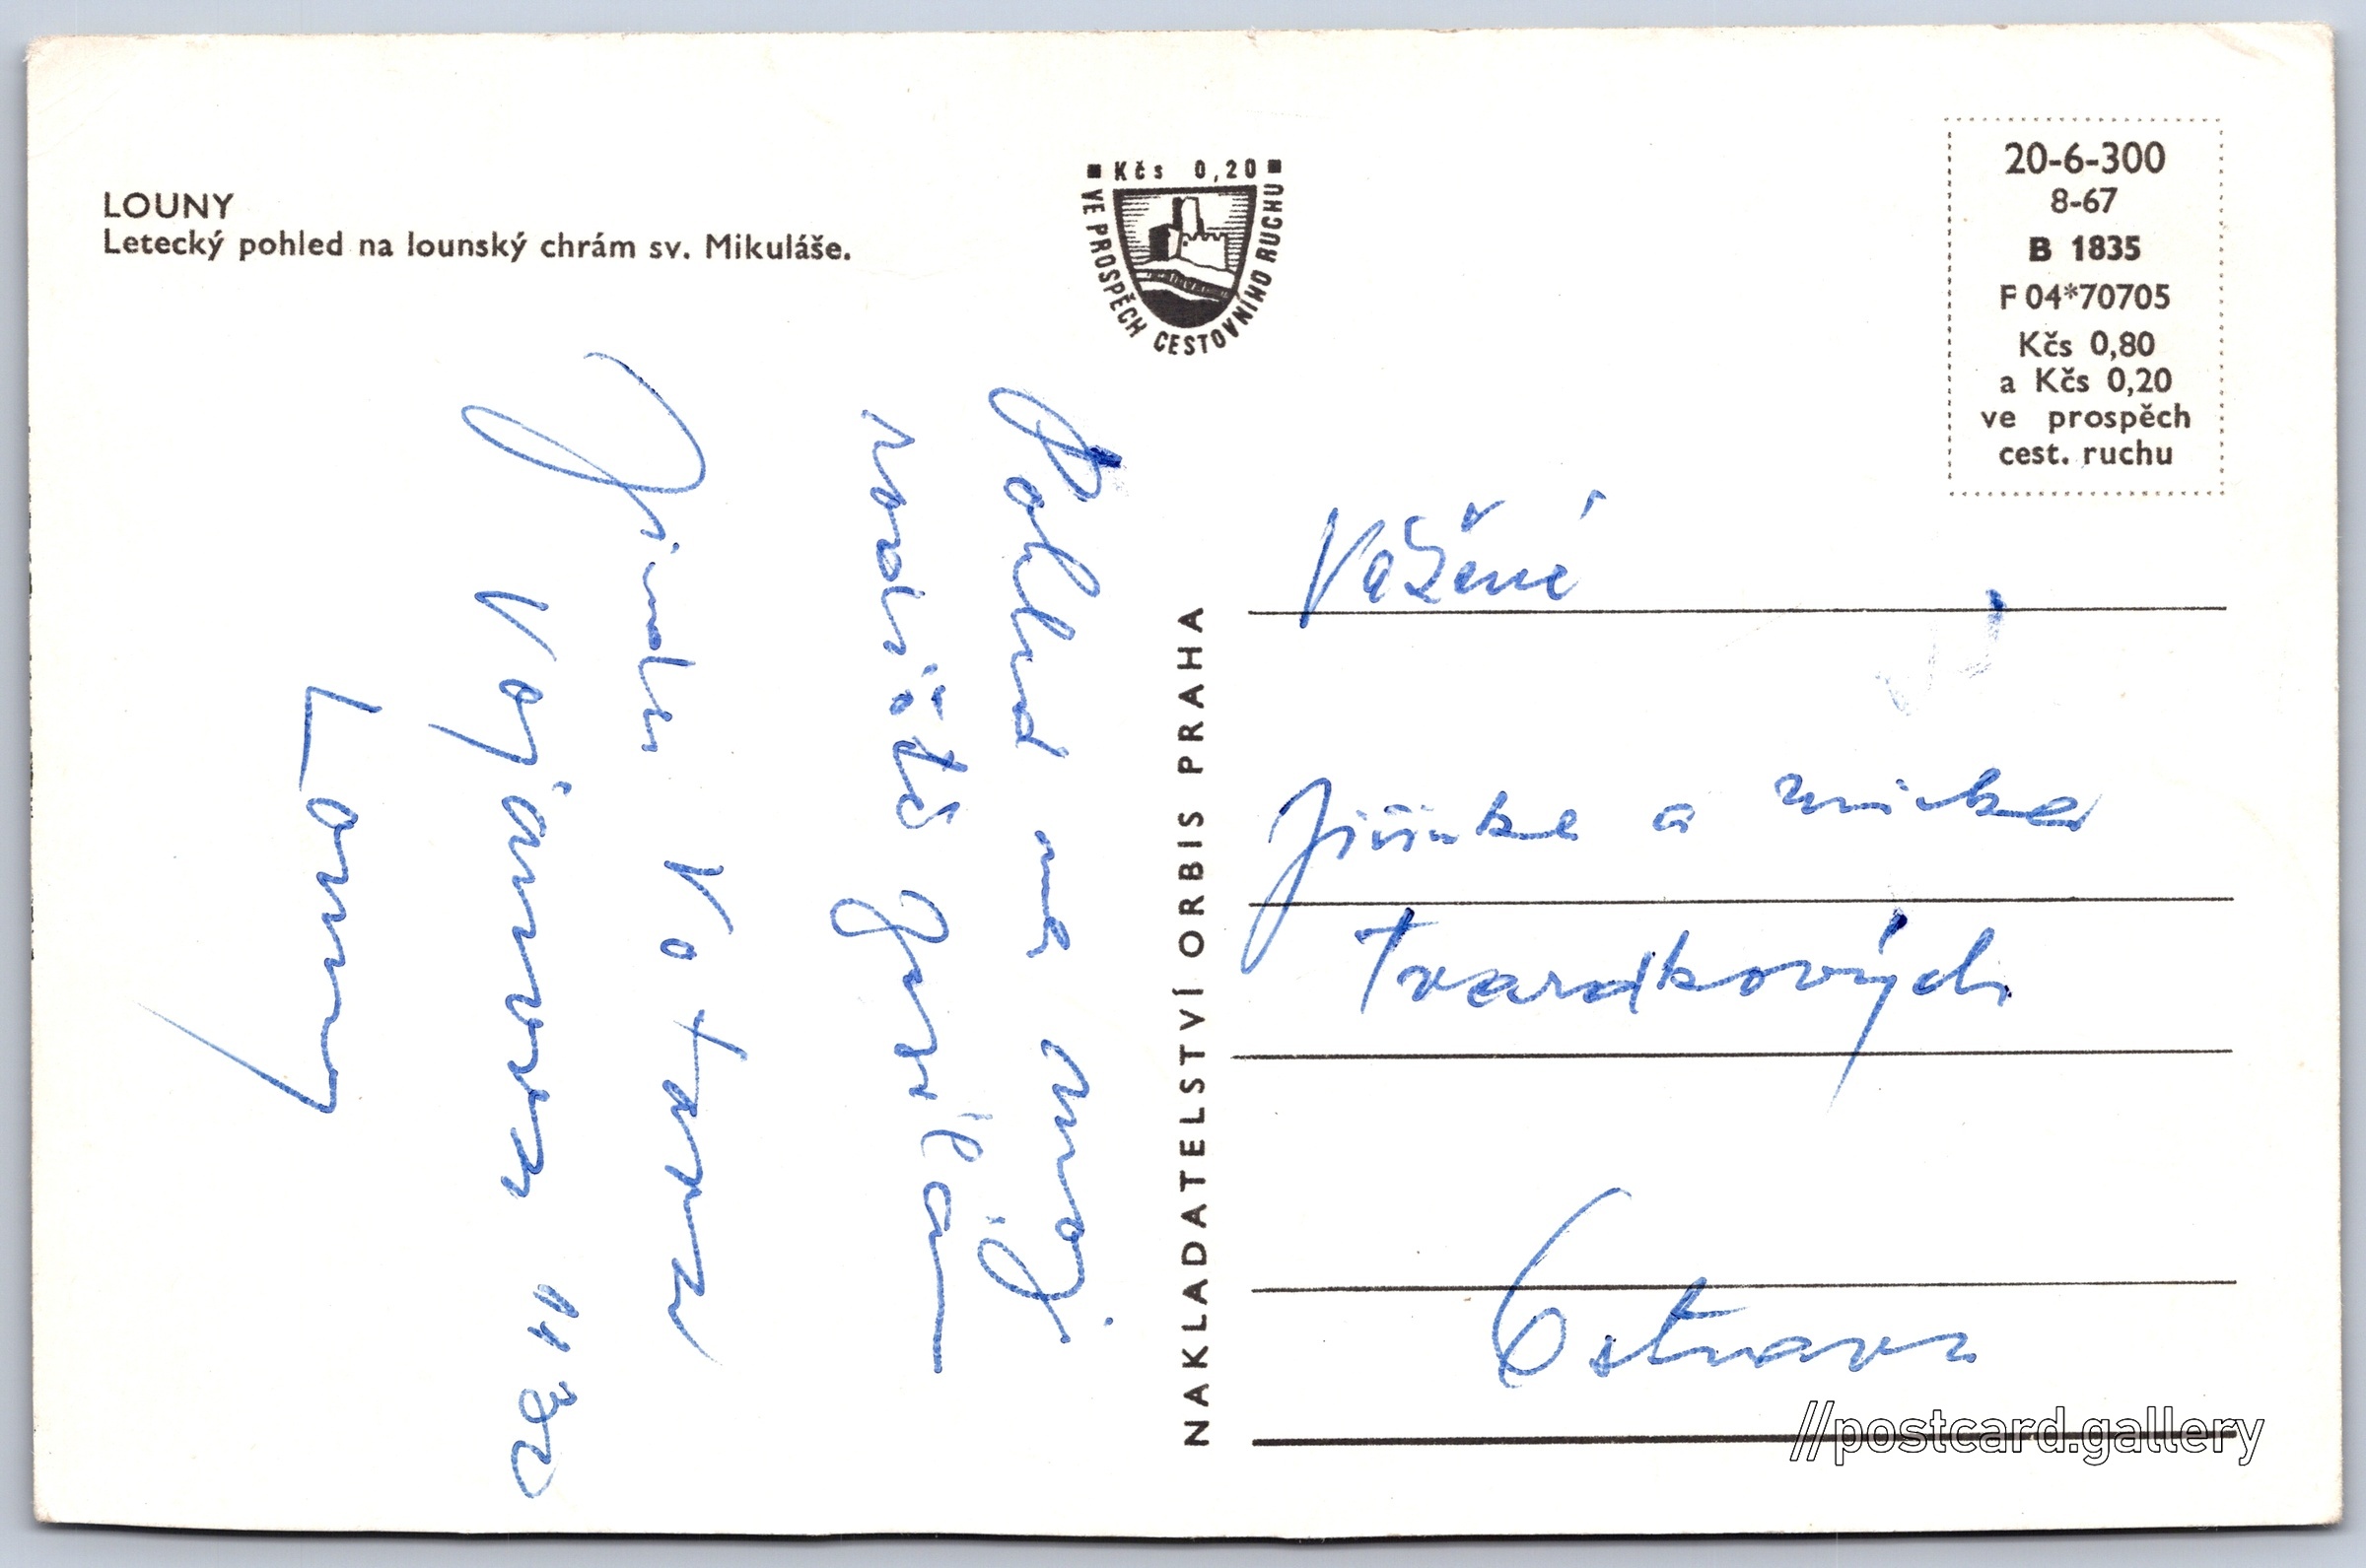 LOUNY
Letecký pohled na lounský chrám sv. Mikuláše.
Kčs 0,20
VE PROSPĚCH CESTOVNÍHO RUCHU
20-6-300
8-67
B 1835
F 04*70705
Kčs 0,80
a Kčs 0,20
ve prospěch
cest. ruchu
Pohled na můj
rodiště
Jindra Votava
Vojanova 1132
Louny
NAKLADATELSTVÍ ORBIS PRAHA
Vážené
Jiřinke a
Tvardkových
Ostrava
//postcard.gallery